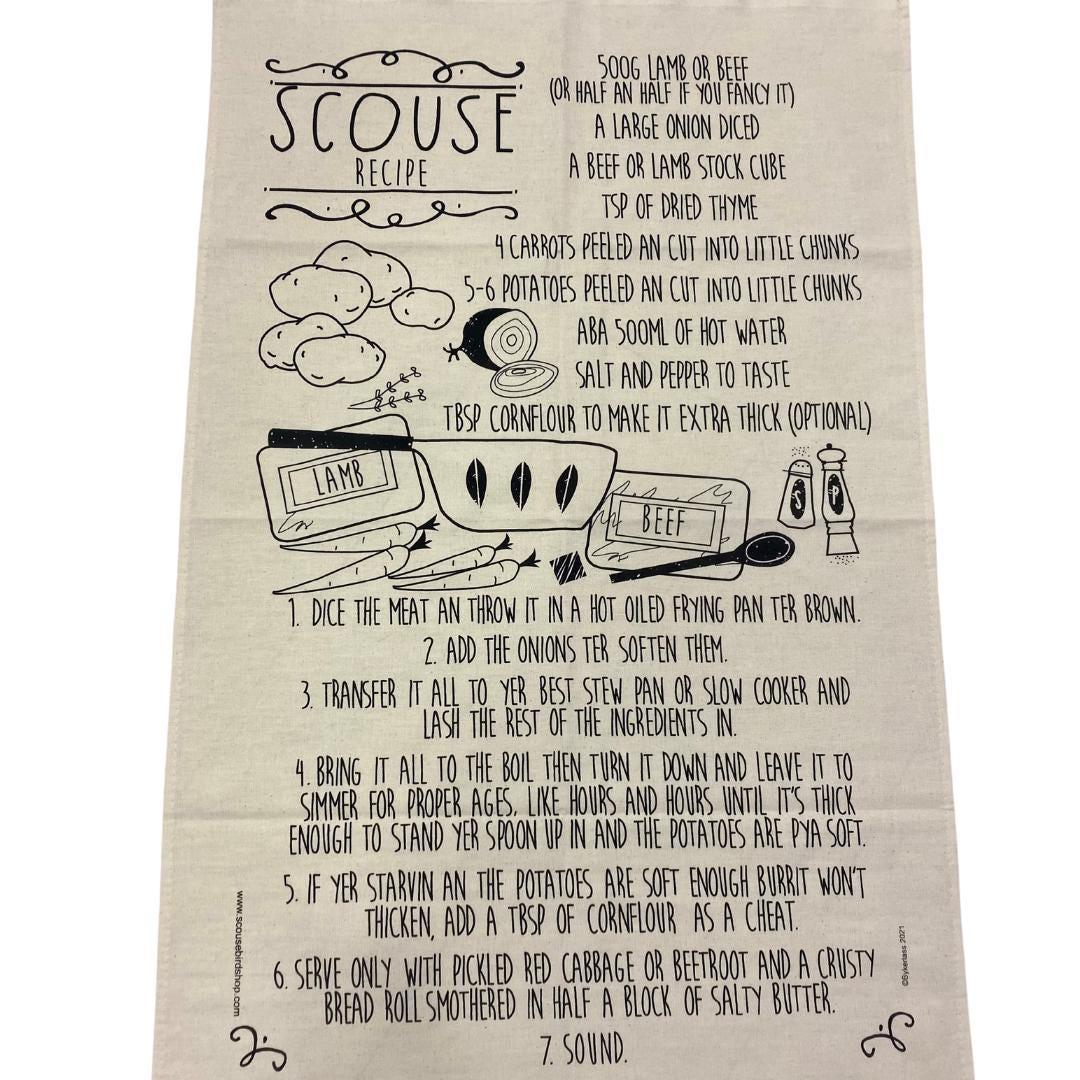 SCOUSE
RECIPE
500G LAMB OR BEEF
(OR HALF AN HALF IF YOU FANCY IT)
A LARGE ONION DICED
A BEEF OR LAMB STOCK CUBE
TSP OF DRIED THYME
4 CARROTS PEELED AN CUT INTO LITTLE CHUNKS
5-6 POTATOES PEELED AN CUT INTO LITTLE CHUNKS
ABA 500ML OF HOT WATER
SALT AND PEPPER TO TASTE
TBSP CORNFLOUR TO MAKE IT EXTRA THICK (OPTIONAL)
LAMB
BEEF
S
P
1. DICE THE MEAT AN THROW IT IN A HOT OILED FRYING PAN TER BROWN.
2. ADD THE ONIONS TER SOFTEN THEM.
3. TRANSFER IT ALL TO YER BEST STEW PAN OR SLOW COOKER AND
LASH THE REST OF THE INGREDIENTS IN.
4. BRING IT ALL TO THE BOIL THEN TURN IT DOWN AND LEAVE IT TO
SIMMER FOR PROPER AGES, LIKE HOURS AND HOURS UNTIL IT'S THICK
ENOUGH TO STAND YER SPOON UP IN AND THE POTATOES ARE PYA SOFT.
5. IF YER STARVIN AN THE POTATOES ARE SOFT ENOUGH BURRIT WON'T
THICKEN, ADD A TBSP OF CORNFLOUR AS A CHEAT.
6. SERVE ONLY WITH PICKLED RED CABBAGE OR BEETROOT AND A CRUSTY
BREAD ROLL SMOTHERED IN HALF A BLOCK OF SALTY BUTTER.
7. SOUND.
www.scousebirdshop.com
©Bykerlass 2021